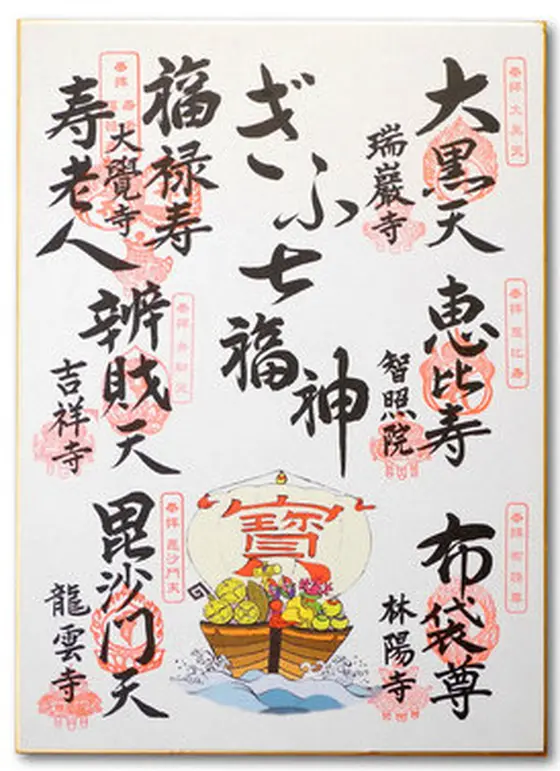 奉拝 大黒天
大黒天
瑞巖寺
奉拝 恵比寿
恵比寿
智照院
奉拝 布袋尊
布袋尊
林陽寺
ぎふ七福神
寶
奉拝
福禄寿
大覺寺
寿老人
奉拝 弁財天
辨財天
吉祥寺
奉拝 毘沙門天
毘沙門天
龍雲寺